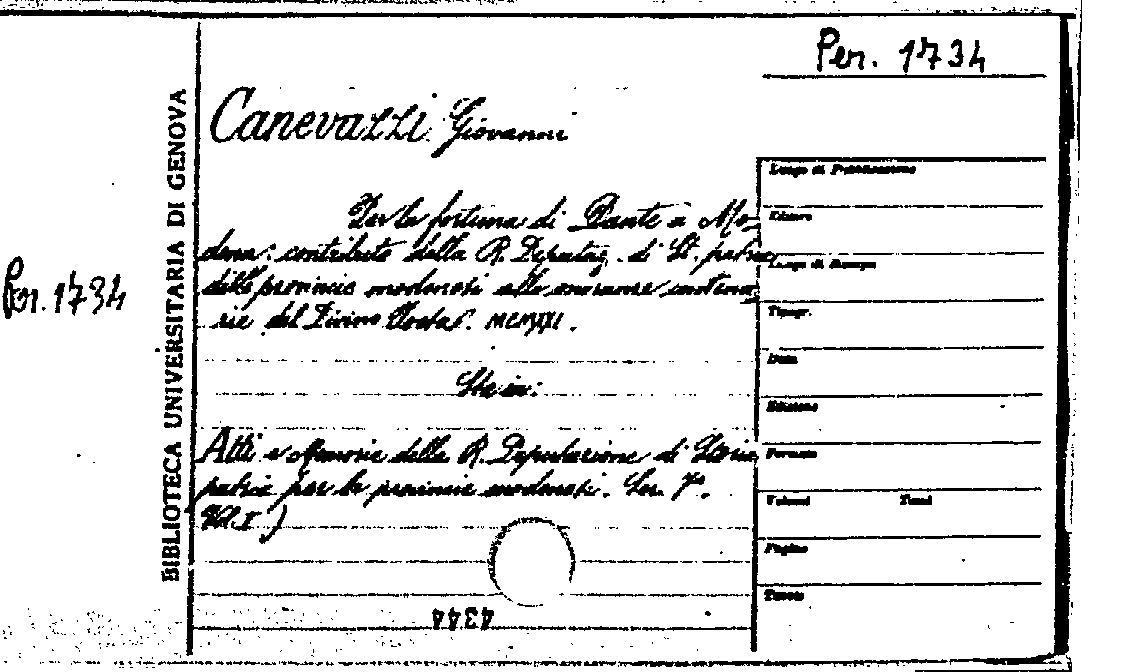 Per. 1734
Canevazzi Giovanni
Per la fortuna di Dante a Mo-
dena: contributo della R. Deputaz. di St. patria
delle provincie modenesi alle onoranze centena-
rie del Divino Poeta. MCMXXI.
Sta in:
Atti e Memorie della R. Deputazione di Storia
patria per le provincie modenesi. Ser. 7ª.
Vol. I)
Per. 1734
BIBLIOTECA UNIVERSITARIA DI GENOVA
Luogo di Pubblicazione
Editore
Luogo di Stampa
Tipogr.
Data
Edizione
Formato
Volumi Tomi
Pagine
Tavole
4344